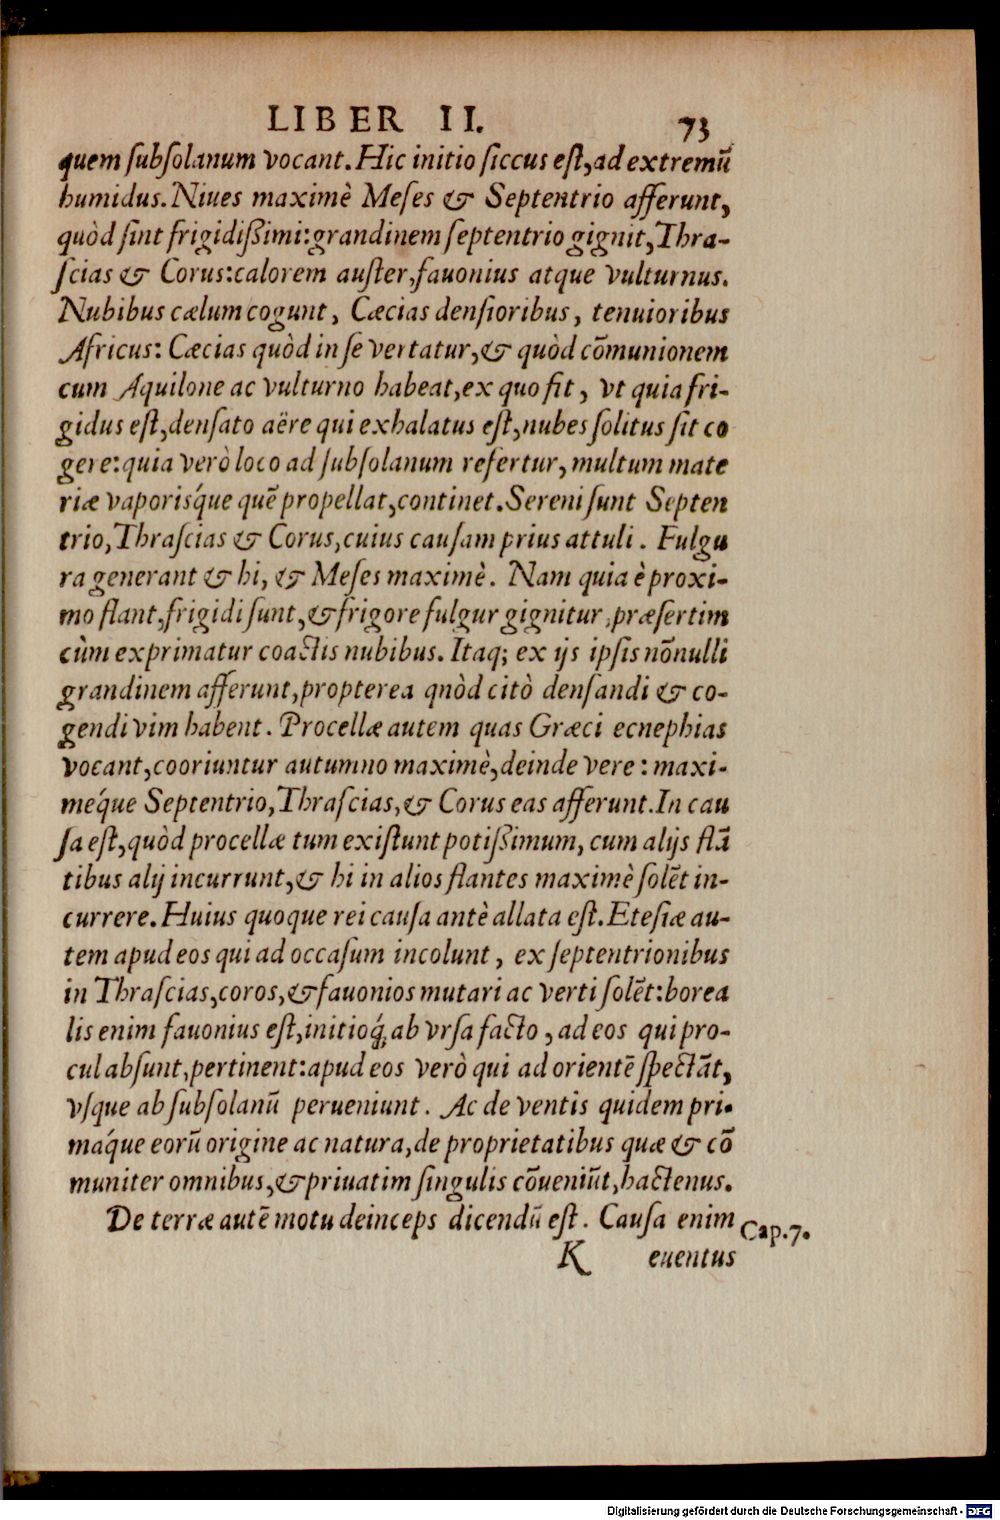 LIBER II. 73
quem ſubſolanum vocant. Hic initio ſiccus eſt, ad extremũ
humidus. Niues maximè Meſes & Septentrio afferunt,
quòd ſint frigidißimi: grandinem ſeptentrio gignit, Thra-
ſcias & Corus: calorem auſter, fauonius atque vulturnus.
Nubibus cælum cogunt, Cæcias denſioribus, tenuioribus
Africus: Cæcias quòd in ſe vertatur, & quòd cõmunionem
cum Aquilone ac vulturno habeat, ex quo fit, vt quia fri-
gidus eſt, denſato aëre qui exhalatus eſt, nubes ſolitus ſit co
gere: quia verò loco ad ſubſolanum refertur, multum mate
riæ vaporisq́ue quẽ propellat, continet. Sereni ſunt Septen
trio, Thraſcias & Corus, cuius cauſam prius attuli. Fulgu
ra generant & hi, & Meſes maximè. Nam quia è proxi-
mo flant, frigidi ſunt, & frigore fulgur gignitur, præſertim
cùm exprimatur coactis nubibus. Itaq; ex ijs ipſis nõnulli
grandinem afferunt, propterea qnòd citò denſandi & co-
gendi vim habent. Procellæ autem quas Græci ecnephias
vocant, cooriuntur autumno maximè, deinde vere: maxi-
meq́ue Septentrio, Thraſcias, & Corus eas afferunt. In cau
ſa eſt, quòd procellæ tum exiſtunt potißimum, cum alijs flã
tibus alij incurrunt, & hi in alios flantes maximè ſolẽt in-
currere. Huius quoque rei cauſa antè allata eſt. Eteſiæ au-
tem apud eos qui ad occaſum incolunt, ex ſeptentrionibus
in Thraſcias, coros, & fauonios mutari ac verti ſolẽt: borea
lis enim fauonius eſt, initioq́; ab vrſa facto, ad eos qui pro-
cul abſunt, pertinent: apud eos verò qui ad orientẽ ſpectãt,
vſque ab ſubſolanũ perueniunt. Ac de ventis quidem pri-
maq́ue eorũ origine ac natura, de proprietatibus quæ & cõ
muniter omnibus, & priuatim ſingulis cõueniũt, hactenus.
De terræ autẽ motu deinceps dicendũ eſt. Cauſa enim Cap. 7.
K euentus
Digitalisierung gefördert durch die Deutsche Forschungsgemeinschaft - DFG